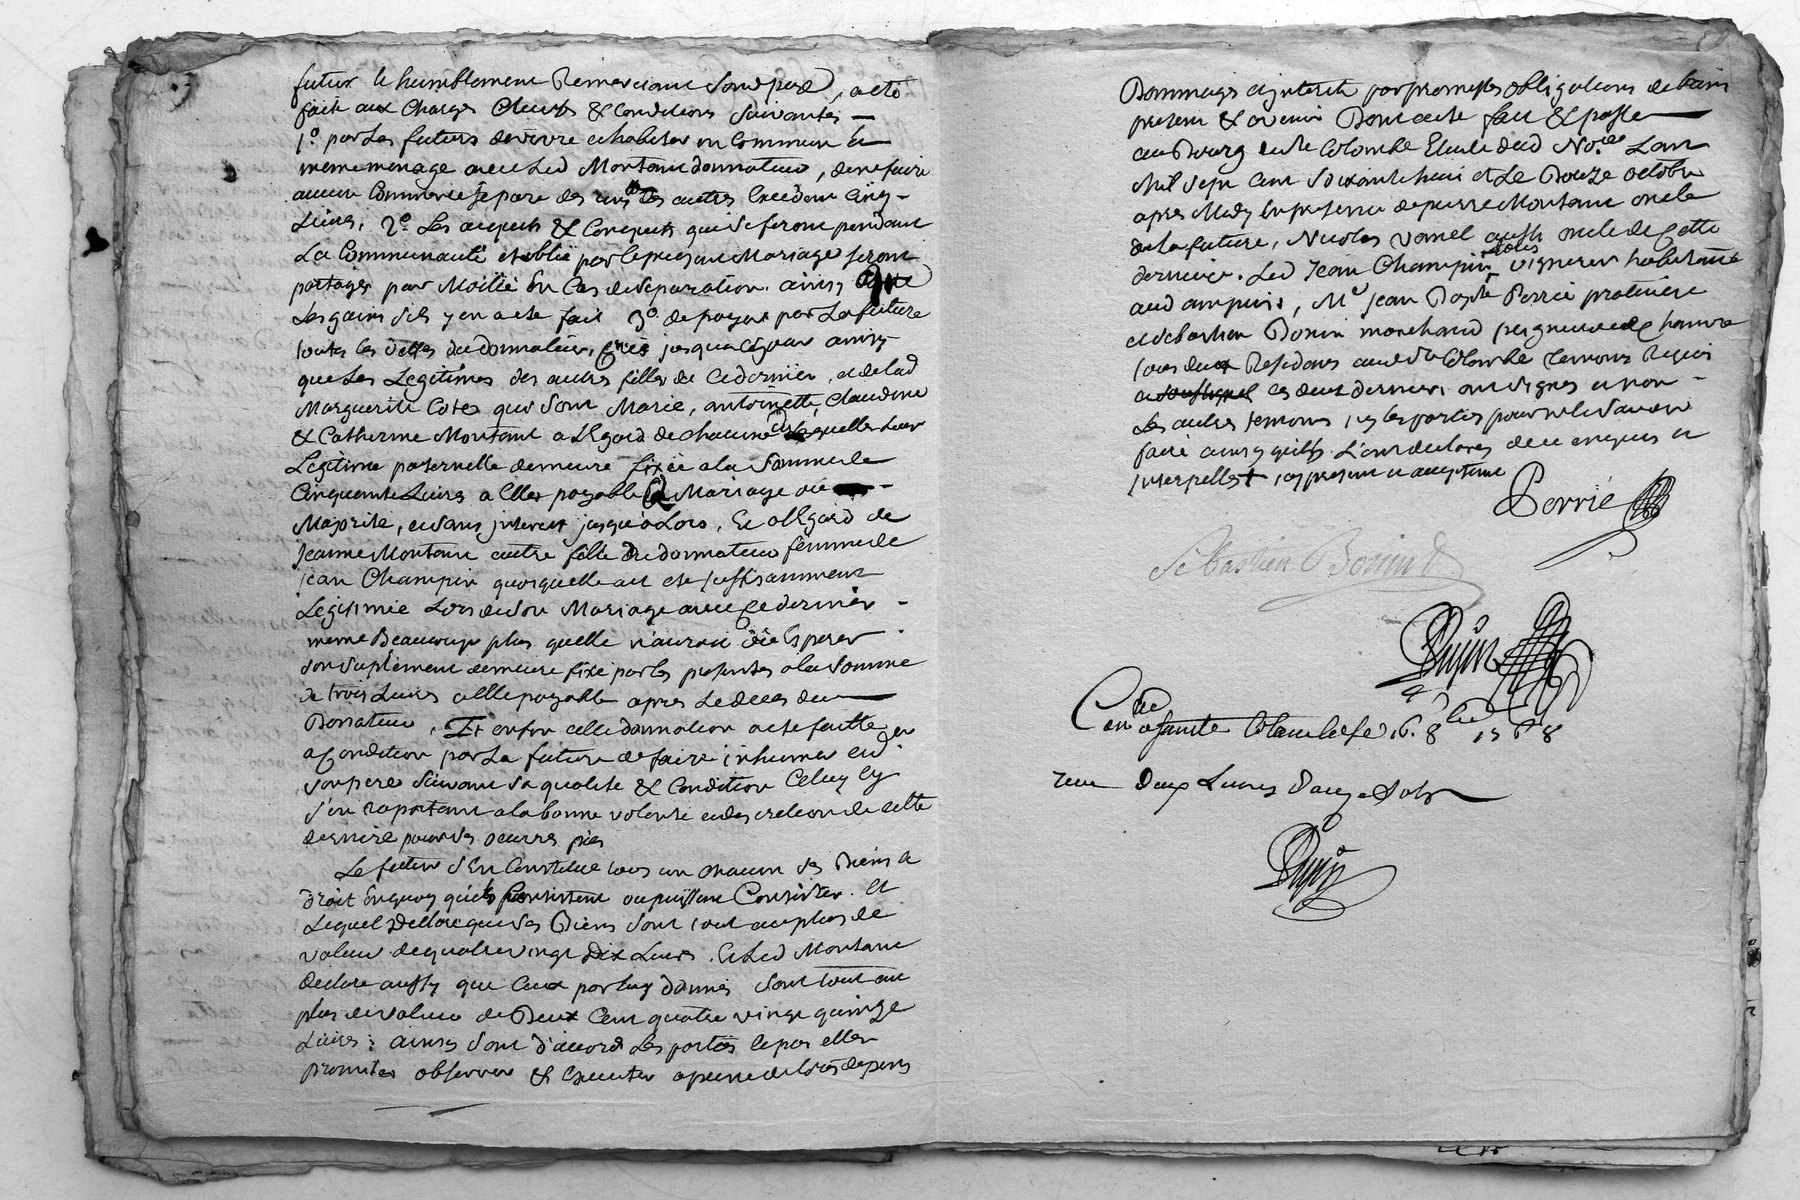 futur le humblement Remerciant Sond pere, a eté
fait aux Charges Clauses & Conditions Suivantes —
1.° par Les futurs de vivre et habiter en Commun Et
meme menage avec Led Montant donnateur, de ne faire
aucun Commerce Separé des uns les autres Excedant Cinq -
Livres, 2.° Les acquets & Conquets qui Se feront pendant
La Communauté etablie par le present Mariage Seront
partagés par Moitié En Cas de Separation. ainsy que
Les gains S'ils y en a été fait 3.° de payer par La future
toutes les dettes du donnateur, jusqua ce jour ainsy
que Les Legitimes des autres filles de Ce dernier, et de lad
Marguerite Cotes qui Sont Marie, antoinette, Claudine
& Catherine Montant a LEgard de chacune desquelles Leur
Legitime paternelle demeure fixée a la Somme de
Cinquante Livres a Elles payable a Mariage ou -
Majorité, et Sans jnterest jusqu'a Lors, Et alEgard de
Jeanne Montant autre fille Du donnateur femme de
jean Champin quoiquelle ait eté Suffisamment
Legitimée Lors de Son Mariage avec Ce dernier -
meme Beaucoup plus quelle n'auroit Esperer
Son Suplement demeure fixé par les presentes a la Somme
de trois Livres a Elle payable apres Le deces du —
Donnateur, Et enfin cette donnation a eté faitte
a Condition par La future de faire inhumer
Son pere Suivant Sa qualité & Condition Celuy Cy
S'en raportant a la bonne volonté et discretion de cette
derniere pour Ses oeuvres pies
Le futur S'En Constitue tous un chacun Ses Biens &
droit Enquoy qu'ils Consistent ou puissent Consister. Et
Lequel Declare que Ses Biens Sont tout au plus de
valeur de quatre vingt Dix Livres. Et Led Montant
declare aussy que Ceux par luy donnés Sont tout au
plus de valeur de Deux Cent quatre vingt quinze
Livres: ainsy Sont d'accord Les parties le par elles
promettes observer & Executer a peine de tous depens
Dommages et jnterets par promesses obligations de biens
present & avenir Dont acte fait & passé —
au Bourg de Ste Colombe Etude dud No.re Lan
Mil Sept Cent Soixante huit et Le Douze octobre
apres Midy En presence de pierre Montant oncle
de la future, Nicolas vamel aussy oncle de Cette
derniere. Led Jean Champin tous vignerons habitants
aud ampuis, M.e Jean Bapte Perrié praticien
et Sebastien Bonin marchand peigneur de chanvre
tous deux Residans aud Ste Colombe Temoins Requis
ces deux derniers ont Signés et non -
Les autres temoins ny les parties pour ne le Savoir
faire ainsy quils L'ont declarés de ce enquis et
jnterpellés present et acceptant
Perrié
Sebastien Bonind
Dujin
C.lé a Sainte Colombe le 16. 8.bre 1768
reçu Deux Livres Douze Sols
Dujin